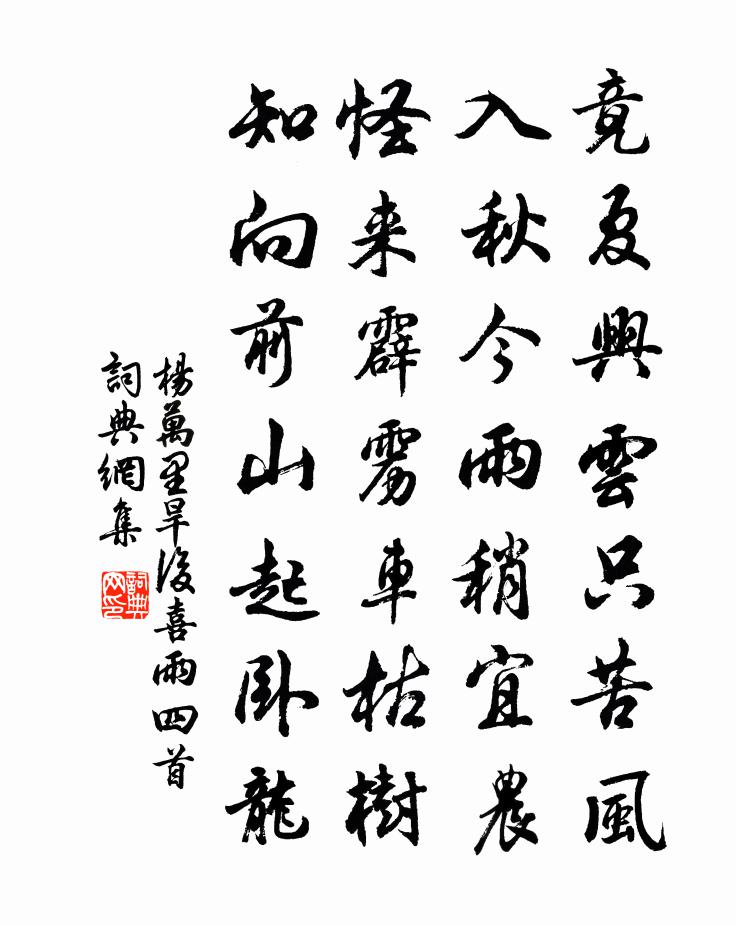 竟夏興雲只苦風
入秋今雨稍宜農
怪来霹雳車枯樹
知向前山起卧龍
楊萬里旱後喜雨四首
詞典網集
詞典
网印